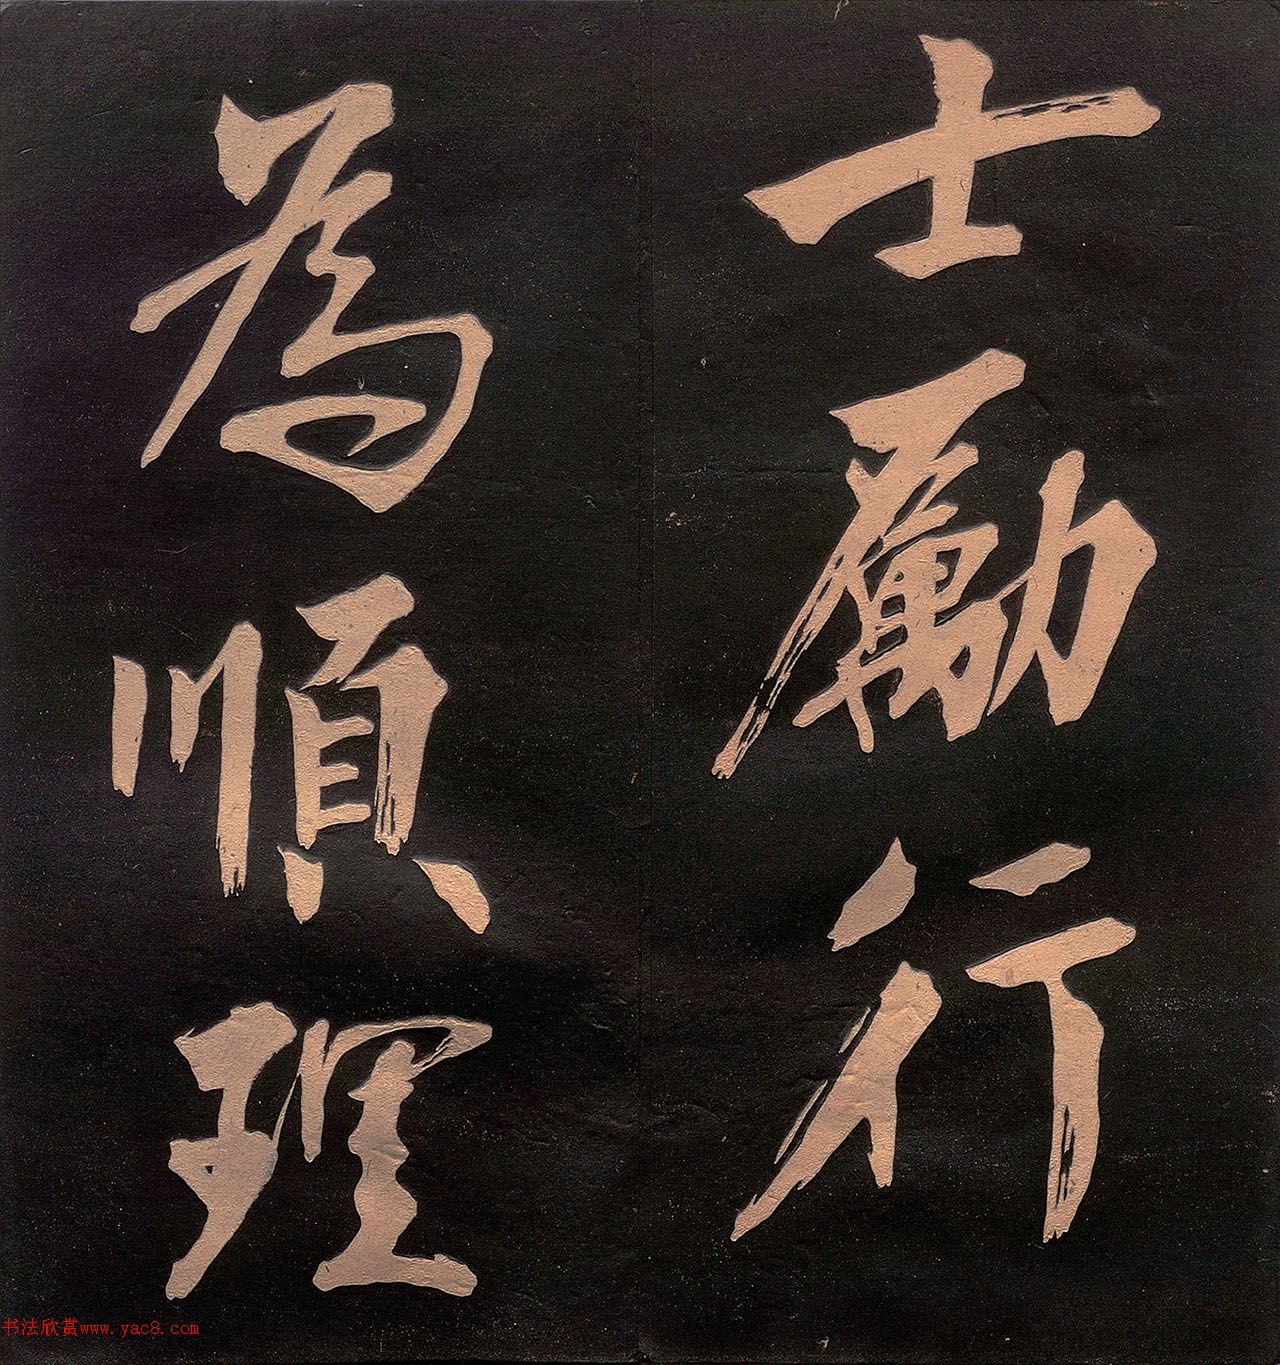 士勵行
為順理
书法欣赏www.yac8.com